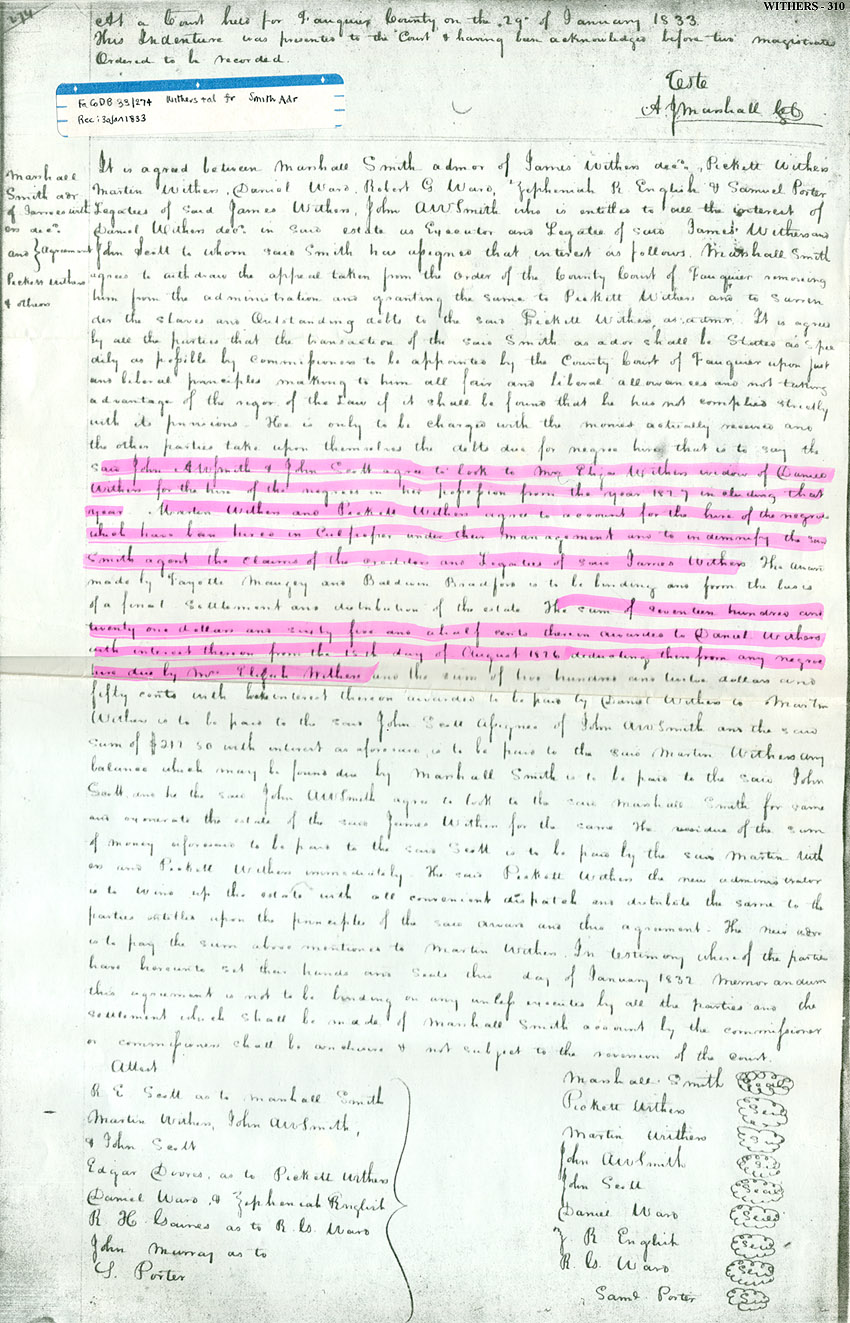 WITHERS - 310
274
At a Court held for Fauquier County on the 29th of January 1833
This Indenture was presented to the Court & having been acknowledged before two magistrates
Ordered to be recorded.
Teste
A. J. Marshall
Fa Co DB 33/274 Withers et al fr Smith Adr
Rec: 30 Jan 1833
Marshall
Smith adr
of James With
ers decd
and } Agreement
Pickett Withers
& others
It is agreed between Marshall Smith admor of James Withers decd, Pickett Withers
Martin Withers, Daniel Ward, Robert G Ward, Zepheniah R English & Samuel Porter
Legatees of said James Withers, John AWSmith who is entitled to all the interest of
Daniel Withers decd in said estate as Executor and Legatee of said James Withers and
John Scott to whom said Smith has assigned that interest as follows. Marshall Smith
agrees to withdraw the appeal taken from the order of the County Court of Fauquier removing
him from the administration and granting the same to Pickett Withers and to surren
der the slaves and Outstanding debts to the said Pickett Withers, as admr. It is agreed
by all the parties that the transaction of the said Smith as ador shall be Stated as Spee
dily as possible by Commissioners to be appointed by the County Court of Fauquier upon just
and liberal principles making to him all fair and liberal allowances and not taking
advantage of the rigor of the Law if it shall be found that he has not complied strictly
with its provisions. He is only to be charged with the monies actually received and
the other parties take upon themselves the debts due for negroe hires that is to say the
said John AWSmith & John Scott agree to look to Mrs Eliza Withers widow of Daniel
Withers for the hire of the negroes in her possession from the year 1827 including that
year. Martin Withers and Pickett Withers agree to account for the hire of the negroes
which have been hired in Culpeper under their management and to indemnify the said
Smith against the claims of the creditors and Legatees of said James Withers The award
made by Fayette Mauzey and Baldwin Bradford is to be binding and form the basis
of a final settlement and distribution of the estate. The sum of seventeen hundred and
twenty one dollars and sixty five and a half cents therein awarded to Daniel Withers
with interest thereon from the 15th day of August 1826 deducting therefrom any negroe
hire due by Mrs Elizah Withers and the sum of two hundred and twelve dollars and
fifty cents with interest thereon awarded to be paid by Daniel Withers to Martin
Withers is to be paid to the said John Scott Assignee of John AWSmith and the said
sum of $212.50 with interest as aforesaid is to be paid to the said Martin Withers any
balance which may be found due by Marshall Smith is to be paid to the said John
Scott and he the said John AWSmith agree to look to the said Marshall Smith for same
and exonerate the estate of the said James Withers for the same The residue of the sum
of money aforesaid to be paid to the said Scott is to be paid by the said Martin With
ers and Pickett Withers immediately. The said Pickett Withers the new administrator
is to wind up the estate with all convenient dispatch and distribute the same to the
parties entitled upon the principles of the said award and this agreement. The new adr
is to pay the sum above mentioned to Martin Withers. In testimony whereof the parties
have hereunto set their hands and seals this day of January 1832 Memorandum
this agreement is not to be binding on any unless executed by all the parties and the
settlement which shall be made of Marshall Smith account by the commissioner
or commissioners shall be conclusive & not subject to the revision of the court.
Attest
R E Scott as to Marshall Smith
Martin Withers, John AWSmith,
& John Scott
Edgar as to Pickett Withers
Daniel Ward, & Zepheniah English
R H Gaines as to R. G. Ward
John Murray as to
S. Porter
Marshall Smith Seal
Pickett Withers Seal
Martin Withers Seal
John AWSmith Seal
John Scott Seal
Daniel Ward Seal
Z R English Seal
R G. Ward Seal
Saml Porter Seal